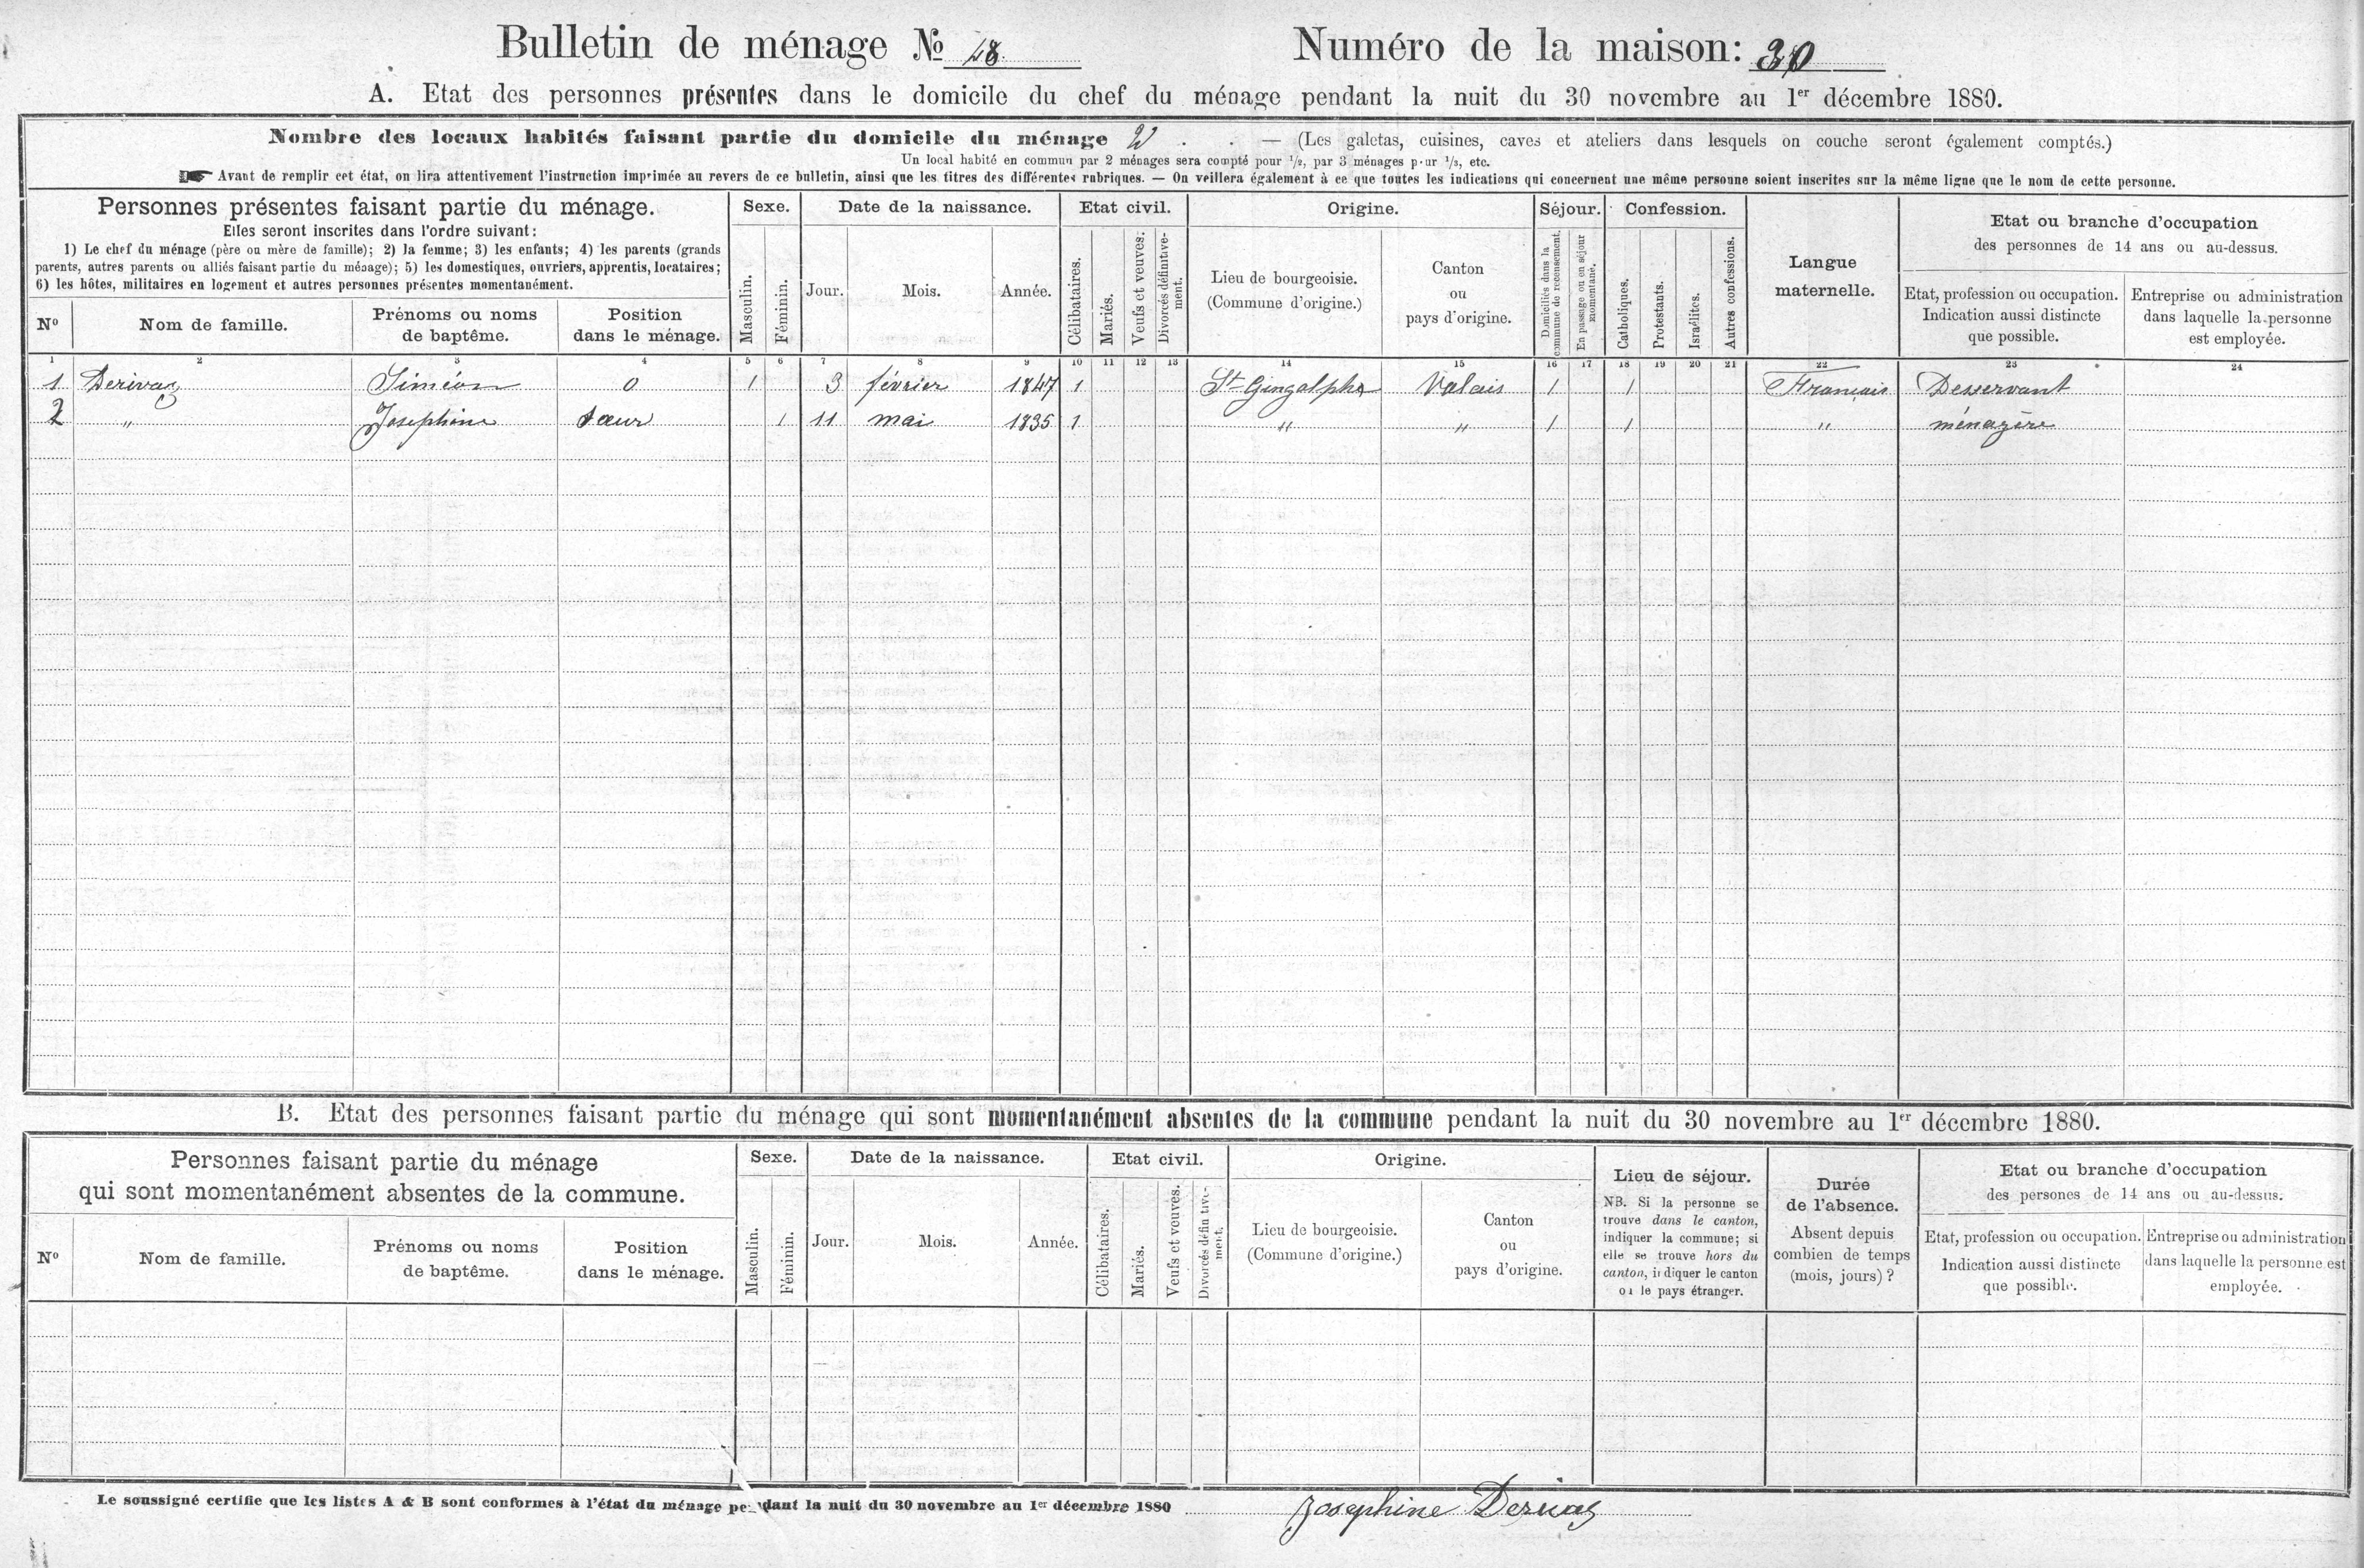 Bulletin de ménage № 48
Numéro de la maison: 30
A. Etat des personnes présentes dans le domicile du chef du ménage pendant la nuit du 30 novembre au 1er décembre 1880.
Nombre des locaux habités faisant partie du domicile du ménage . . — (Les galetas, cuisines, caves et ateliers dans lesquels on couche seront également comptés.)
Un local habité en commun par 2 ménages sera compté pour 1/2, par 3 ménages pour 1/3, etc.
Avant de remplir cet état, on lira attentivement l'instruction imprimée au revers de ce bulletin, ainsi que les titres des différentes rubriques. — On veillera également à ce que toutes les indications qui concernent une même personne soient inscrites sur la même ligne que le nom de cette personne.
Personnes présentes faisant partie du ménage.
Elles seront inscrites dans l'ordre suivant:
1) Le chef du ménage (père ou mère de famille); 2) la femme; 3) les enfants; 4) les parents (grands
parents, autres parents ou alliés faisant partie du ménage); 5) les domestiques, ouvriers, apprentis, locataires;
6) les hôtes, militaires en logement et autres personnes présentes momentanément.
Nº
Nom de famille.
Prénoms ou noms
de baptême.
Position
dans le ménage.
Sexe.
Masculin.
Féminin.
Date de la naissance.
Jour.
Mois.
Année.
Etat civil.
Célibataires.
Mariés.
Veufs et veuves.
Divorcés définitive-
ment.
Origine.
Lieu de bourgeoisie.
(Commune d'origine.)
Canton
ou
pays d'origine.
Séjour.
Domiciliés dans la
commune de recensement.
En passage ou en séjour
momentané.
Confession.
Catholiques.
Protestants.
Israélites.
Autres confessions.
Langue
maternelle.
Etat ou branche d'occupation
des personnes de 14 ans ou au-dessus.
Etat, profession ou occupation.
Indication aussi distincte
que possible.
Entreprise ou administration
dans laquelle la personne
est employée.
1 2 3 4 5 6 7 8 9 10 11 12 13 14 15 16 17 18 19 20 21 22 23 24
1 Derivaz Siméon 0 1 3 février 1847 1 St-Gingolphe Valais 1 1 Francais Desservant
2 " Josephine sœur 1 11 mai 1835 1 " " 1 1 " ménagère
B. Etat des personnes faisant partie du ménage qui sont momentanément absentes de la commune pendant la nuit du 30 novembre au 1er décembre 1880.
Personnes faisant partie du ménage
qui sont momentanément absentes de la commune.
Nº
Nom de famille.
Prénoms ou noms
de baptême.
Position
dans le ménage.
Sexe.
Masculin.
Féminin.
Date de la naissance.
Jour.
Mois.
Année.
Etat civil.
Célibataires.
Mariés.
Veufs et veuves.
Divorcés définitive-
ment.
Origine.
Lieu de bourgeoisie.
(Commune d'origine.)
Canton
ou
pays d'origine.
Lieu de séjour.
NB. Si la personne se
trouve dans le canton,
indiquer la commune; si
elle se trouve hors du
canton, indiquer le canton
ou le pays étranger.
Durée
de l'absence.
Absent depuis
combien de temps
(mois, jours)?
Etat ou branche d'occupation
des persones de 14 ans ou au-dessus.
Etat, profession ou occupation.
Indication aussi distincte
que possible.
Entreprise ou administration
dans laquelle la personne est
employée.
Le soussigné certifie que les listes A & B sont conformes à l'état du ménage pendant la nuit du 30 novembre au 1er décembre 1880 Josephine Derivaz